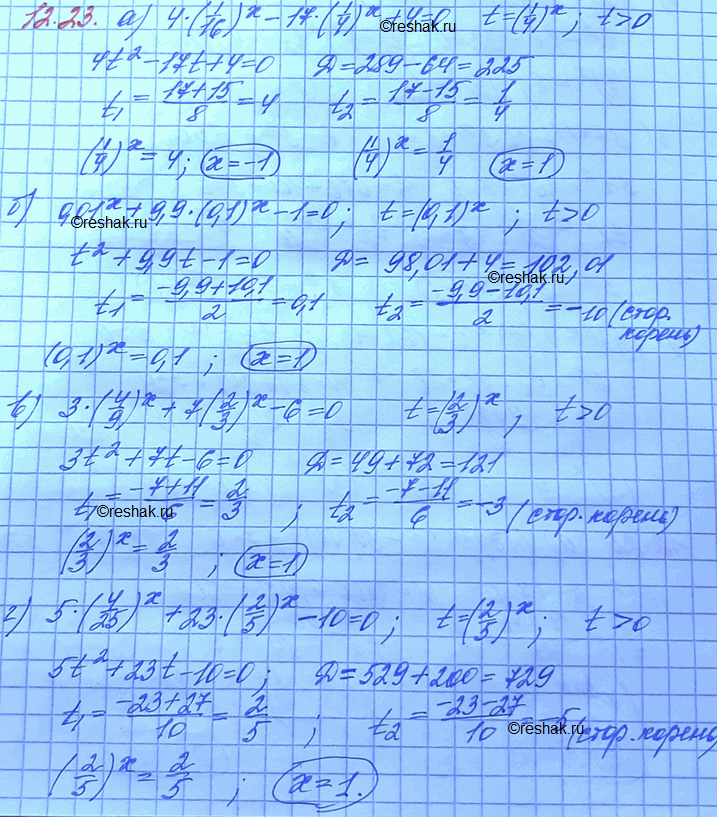 12.23. а) 4·(1/16)^x − 17·(1/4)^x + 4=0 t=(1/4)^x; t>0
©reshak.ru
4t² − 17t + 4 = 0 D = 289 − 64 = 225
t₁ = (17+15)/8 = 4 t₂ = (17−15)/8 = 1/4
(1/4)^x = 4; x = −1 (1/4)^x = 1/4 x = 1
б) 0,01^x + 9,9·(0,1)^x − 1 = 0; t = (0,1)^x; t>0
©reshak.ru
t² + 9,9t − 1 = 0 D = 98,01 + 4 = 102,01
©reshak.ru
t₁ = (−9,9+10,1)/2 = 0,1 t₂ = (−9,9−10,1)/2 = −10 (стор. корень)
(0,1)^x = 0,1; x = 1
в) 3·(4/9)^x + 7(2/3)^x − 6 = 0 t = (2/3)^x, t>0
3t² + 7t − 6 = 0 D = 49 + 72 = 121
t₁ = (−7+11)/6 = 2/3; t₂ = (−7−11)/6 = −3 (стор. корень)
©reshak.ru
(2/3)^x = 2/3; x = 1
г) 5·(4/25)^x + 23·(2/5)^x − 10 = 0; t = (2/5)^x; t>0
5t² + 23t − 10 = 0; D = 529 + 200 = 729
t₁ = (−23+27)/10 = 2/5; t₂ = (−23−27)/10 = −5 (стор. корень)
©reshak.ru
(2/5)^x = 2/5; x = 1.